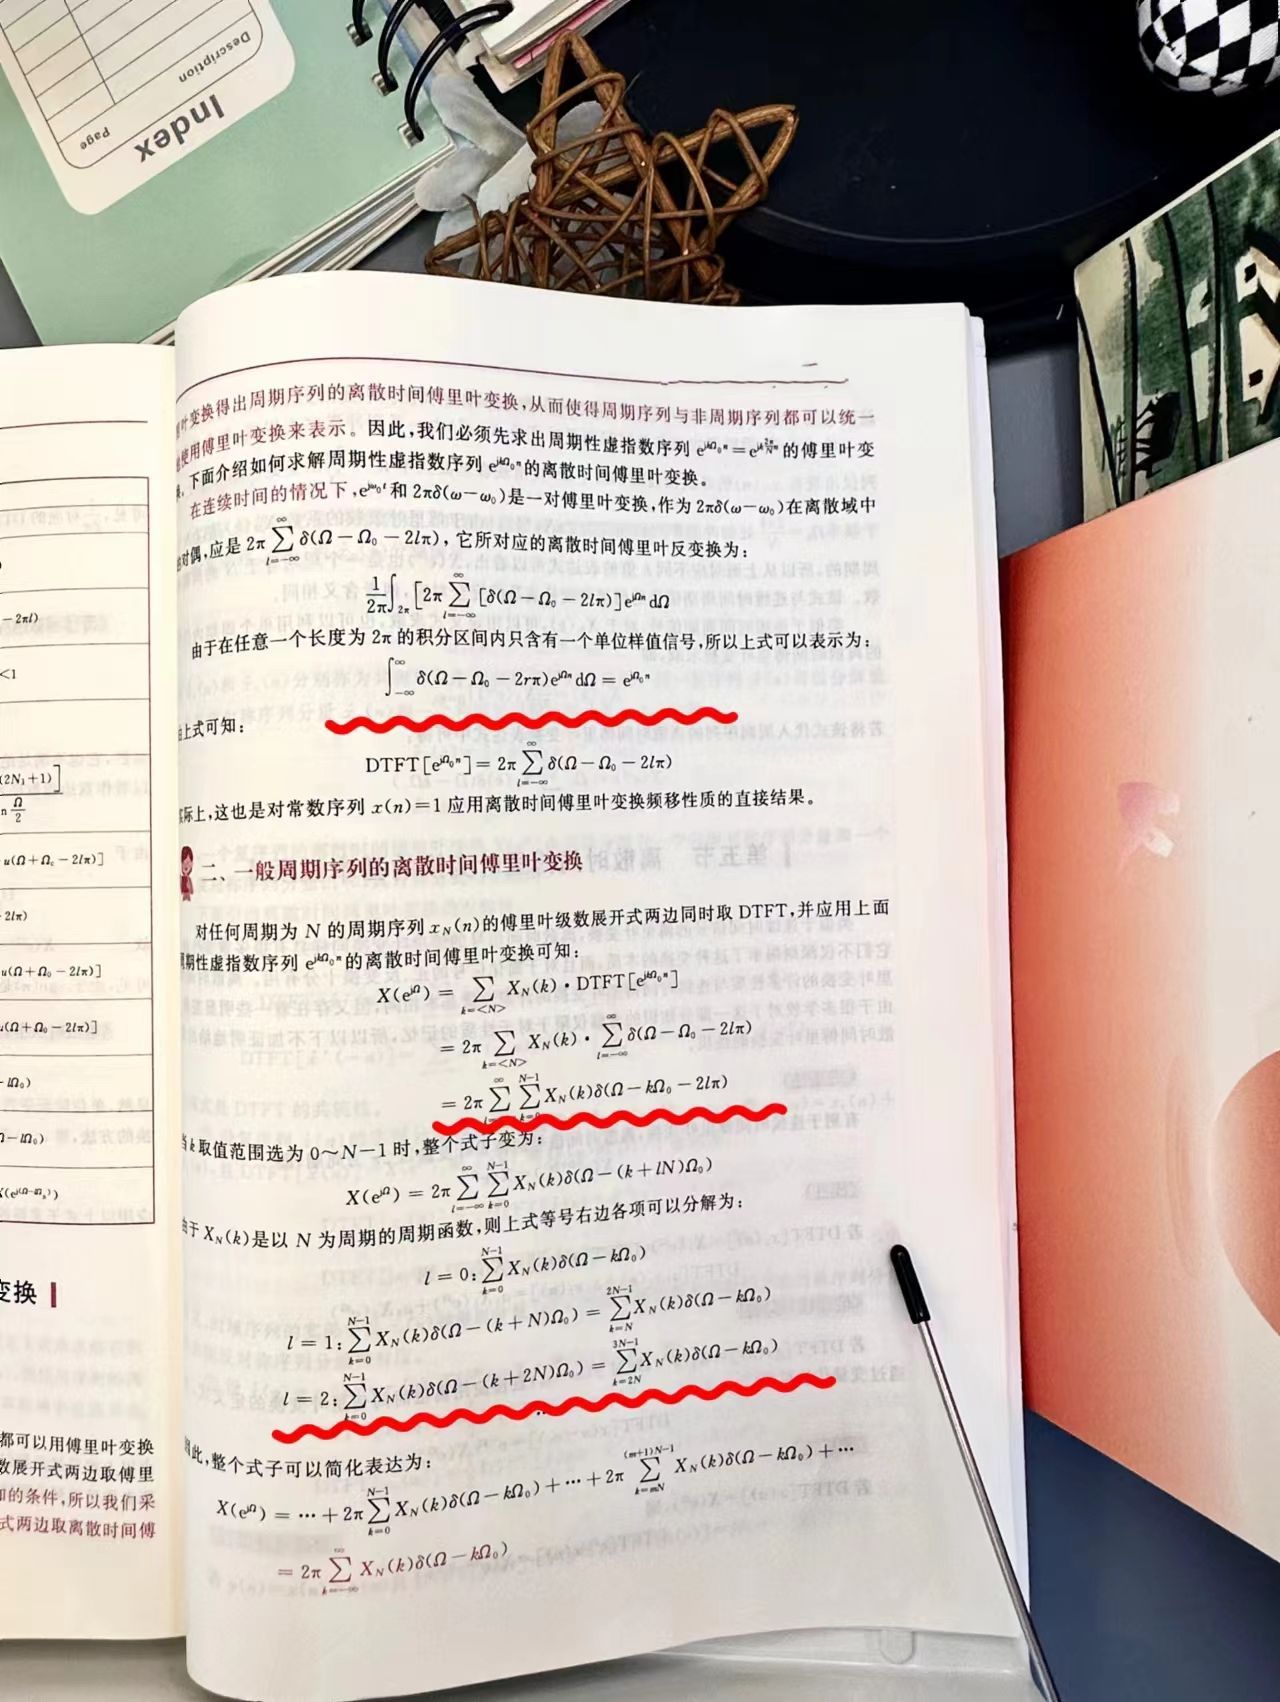 Description
Page
Index
叶变换得出周期序列的离散时间傅里叶变换,从而使得周期序列与非周期序列都可以统一
使用傅里叶变换来表示。因此,我们必须先求出周期性虚指数序列 的傅里叶变
下面介绍如何求解周期性虚指数序列 的离散时间傅里叶变换。
在连续时间的情况下,e^{jω₀t}和 2πδ(ω−ω₀)是一对傅里叶变换,作为 2πδ(ω−ω₀)在离散域中
对偶,应是 2π∑_{l=−∞}^{∞}δ(Ω−Ω₀−2lπ),它所对应的离散时间傅里叶反变换为:
1/2π∫_{2π}[2π∑_{l=−∞}^{∞}[δ(Ω−Ω₀−2lπ)]e^{jΩn}dΩ
由于在任意一个长度为 2π 的积分区间内只含有一个单位样值信号,所以上式可以表示为:
∫_{−∞}^{∞}δ(Ω−Ω₀−2rπ)e^{jΩn}dΩ = e^{jΩ₀n}
上式可知:
DTFT[e^{jΩ₀n}] = 2π∑_{l=−∞}^{∞}δ(Ω−Ω₀−2lπ)
实际上,这也是对常数序列 x(n)=1 应用离散时间傅里叶变换频移性质的直接结果。
二、一般周期序列的离散时间傅里叶变换
对任何周期为 N 的周期序列 x_N(n)的傅里叶级数展开式两边同时取 DTFT,并应用上面
周期性虚指数序列 e^{jkΩ₀n}的离散时间傅里叶变换可知:
X(e^{jΩ}) = ∑_{k=<N>} X_N(k)·DTFT[e^{jkΩ₀n}]
= 2π∑_{k=<N>} X_N(k)·∑_{l=−∞}^{∞}δ(Ω−Ω₀−2lπ)
= 2π∑^{∞}∑_{k=0}^{N−1}X_N(k)δ(Ω−kΩ₀−2lπ)
当 k 取值范围选为 0～N−1 时,整个式子变为:
X(e^{jΩ}) = 2π∑_{l=−∞}^{∞}∑_{k=0}^{N−1}X_N(k)δ(Ω−(k+lN)Ω₀)
由于 X_N(k)是以 N 为周期的周期函数,则上式等号右边各项可以分解为:
l = 0:∑_{k=0}^{N−1}X_N(k)δ(Ω−kΩ₀)
l = 1:∑_{k=0}^{N−1}X_N(k)δ(Ω−(k+N)Ω₀) = ∑_{k=N}^{2N−1}X_N(k)δ(Ω−kΩ₀)
l = 2:∑_{k=0}^{N−1}X_N(k)δ(Ω−(k+2N)Ω₀) = ∑_{k=2N}^{3N−1}X_N(k)δ(Ω−kΩ₀)
因此,整个式子可以简化表达为:
X(e^{jΩ}) = ⋯ + 2π∑_{k=0}^{N−1}X_N(k)δ(Ω−kΩ₀) + ⋯ + 2π∑_{k=mN}^{(m+1)N−1}X_N(k)δ(Ω−kΩ₀) + ⋯
= 2π∑_{k=−∞}^{∞}X_N(k)δ(Ω−kΩ₀)
−2πl)
<1
(2N₁+1)]
Ω/2
u(Ω+Ω₀−2lπ)]
2lπ)
u(Ω+Ω₀−2lπ)]
(Ω+Ω₀−2lπ)]
变换
都可以用傅里叶变换
数展开式两边取傅里
的条件,所以我们采
式两边取离散时间傅